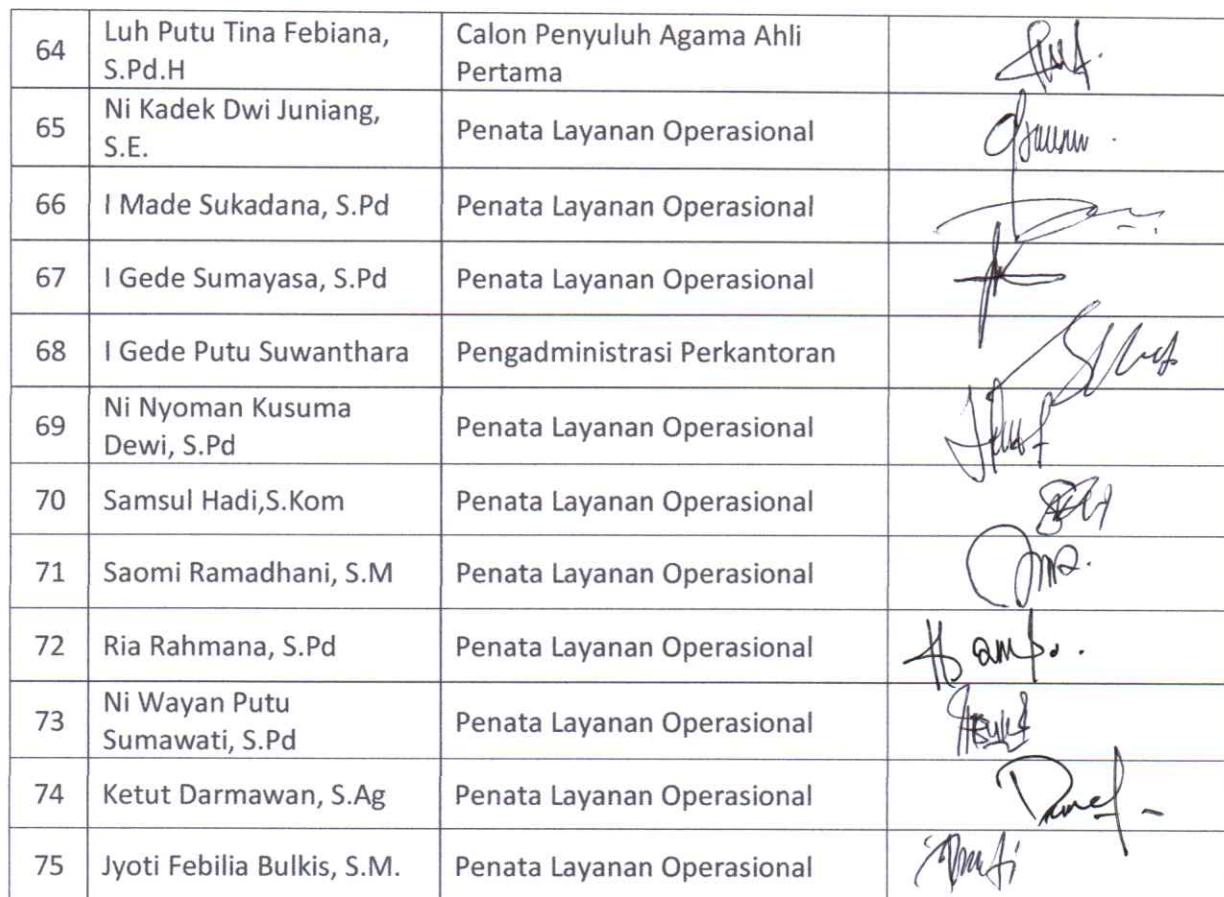 64 Luh Putu Tina Febiana, Calon Penyuluh Agama Ahli
S.Pd.H Pertama
65 Ni Kadek Dwi Juniang, Penata Layanan Operasional
S.E.
66 I Made Sukadana, S.Pd Penata Layanan Operasional
67 I Gede Sumayasa, S.Pd Penata Layanan Operasional
68 I Gede Putu Suwanthara Pengadministrasi Perkantoran
69 Ni Nyoman Kusuma Penata Layanan Operasional
Dewi, S.Pd
70 Samsul Hadi,S.Kom Penata Layanan Operasional
71 Saomi Ramadhani, S.M Penata Layanan Operasional
72 Ria Rahmana, S.Pd Penata Layanan Operasional
73 Ni Wayan Putu Penata Layanan Operasional
Sumawati, S.Pd
74 Ketut Darmawan, S.Ag Penata Layanan Operasional
75 Jyoti Febilia Bulkis, S.M. Penata Layanan Operasional